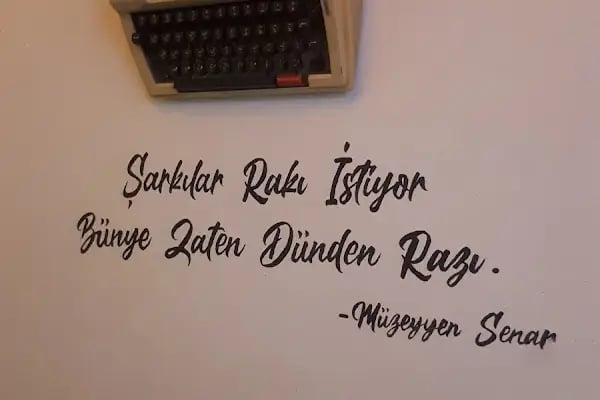 Şarkılar Rakı İstiyor
Bünye Zaten Dünden Razı.
-Müzeyyen Senar